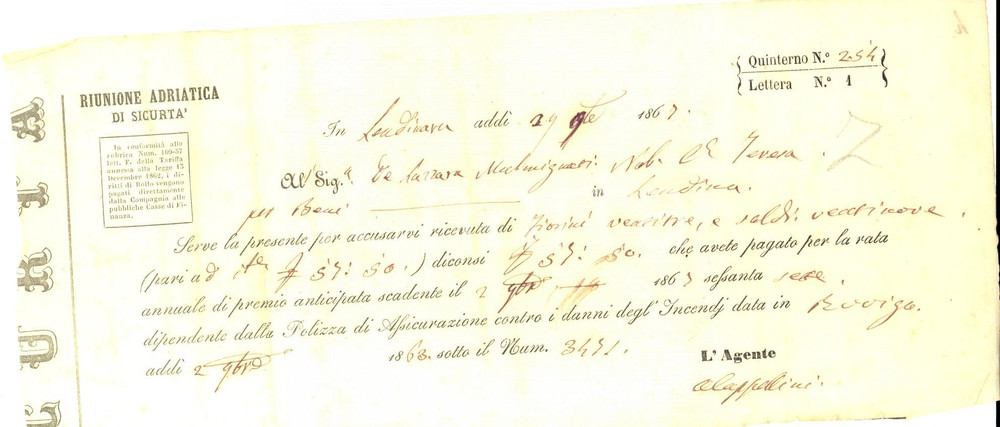 Quinterno N.º 254
Lettera N.º 1
RIUNIONE ADRIATICA
DI SICURTA'
In conformità alla
rubrica Num. 109-57
lett. F. della Tariffa
annessa alla legge 13
Decembre 1862, i di-
ritti di Bollo vengono
pagati direttamente
dalla Compagnia alle
pubbliche Casse di Fi-
nanza.
In Lendinara addi 29 1867
Al Sig.ª De Lazzara Malmignati Nob. Teresa.
per Beni in Lendina.
Serve la presente per accusarvi ricevuta di Fiorini ventitre, e soldi ventinove
(pari ad 57: 50.) diconsi 57: 50. che avete pagato per la rata
annuale di premio anticipata scadente il 2 9bre 1867 sessanta sette
dipendente dalla Polizza di Assicurazione contro i danni degl' Incendj data in Rovigo.
addi 2 9bre 1863. sotto il Num. 3471.
L'Agente